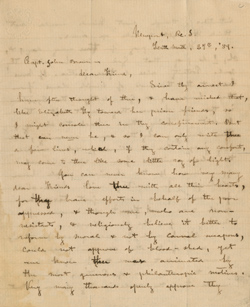 Newport, R.I.
Tenth Month, 27th, '59.
Capt. John Brown
Dear Friend,
Since thy arrest I
have often thought of thee, & have wished that,
like Elizabeth Fry toward her prison friends, so
I might console thee in thy confinement. But
that can never be, & so I can only write thee
a few lines, which, if they contain any comfort,
may come to thee like some little ray of light.
You can never know how very many
dear Friends love thee with all their hearts,
for thy brave efforts in behalf of the poor
oppressed, & though we, who are non-
resistants, & religiously believe it better to
reform by moral & not by carnal weapons,
could not approve of blood-shed, yet
we know thee was animated by
the most generous & philanthropic motives.
Very many thousands openly approve thy